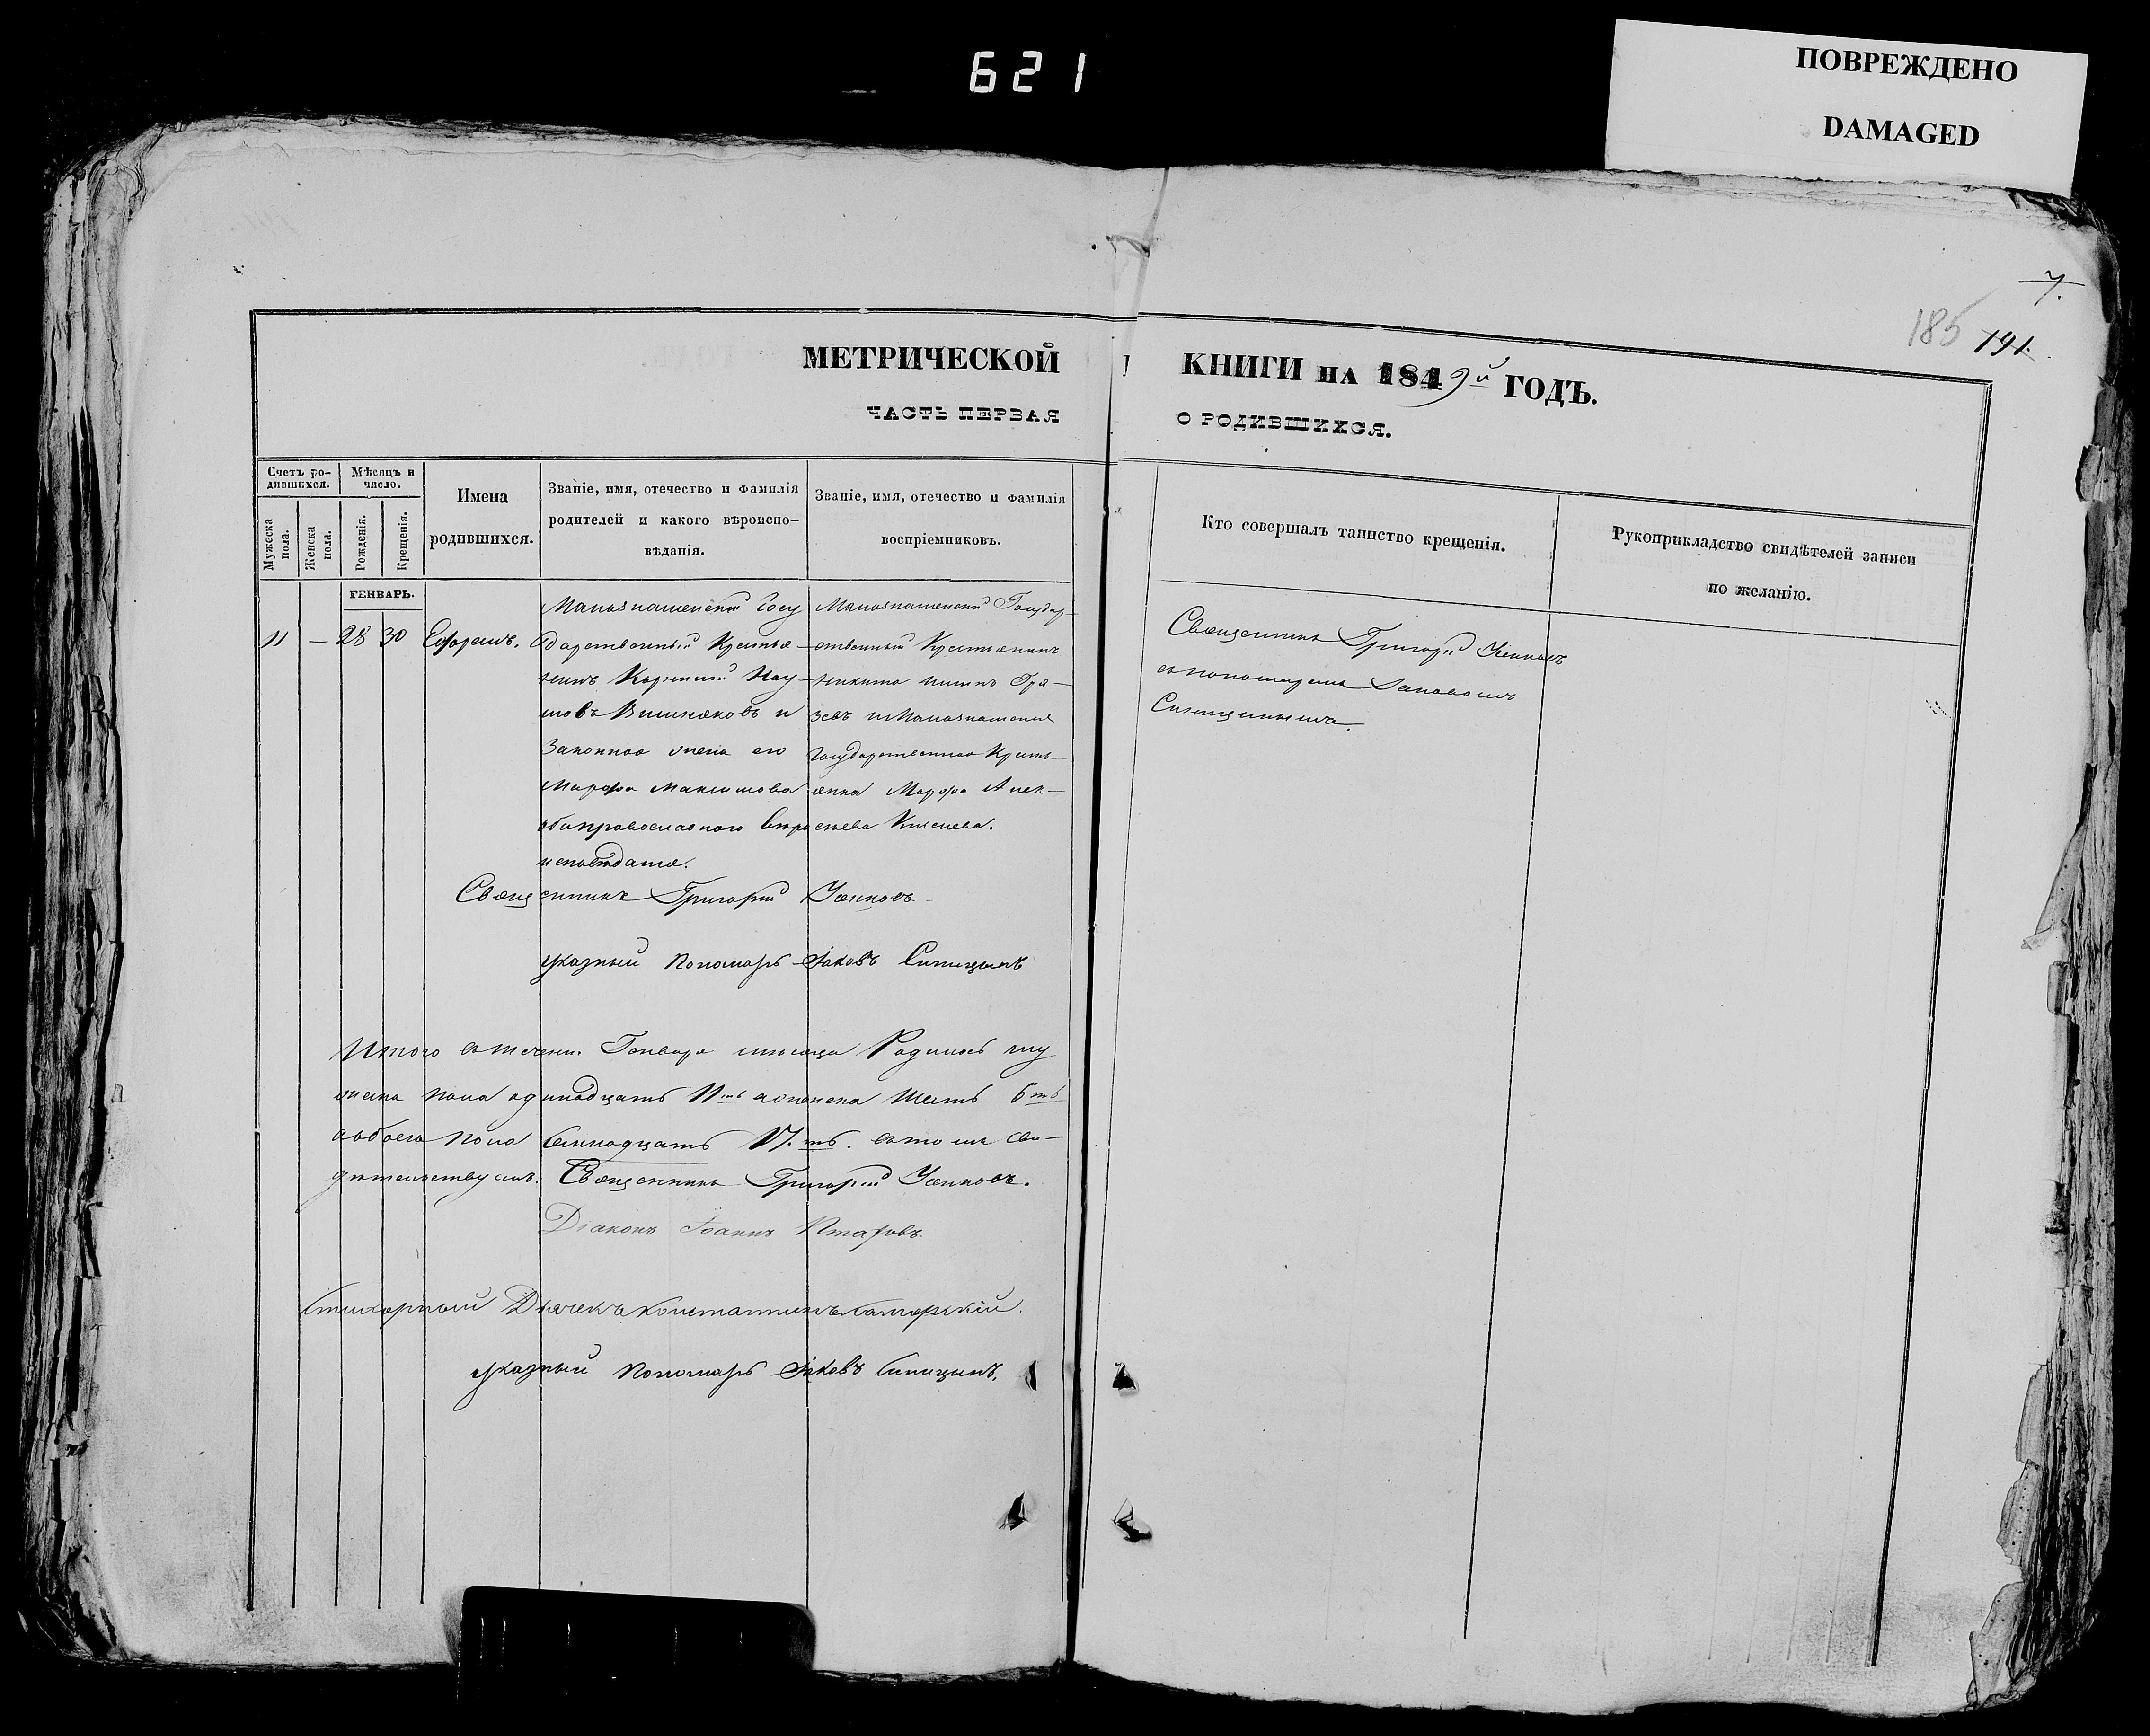 621
ПОВРЕЖДЕНО
DAMAGED
7.
185 191.
МЕТРИЧЕСКОЙ КНИГИ НА 1849й ГОДЪ.
ЧАСТЬ ПЕРВАЯ О РОДИВШИХСЯ.
Счетъ родившихся.
Мужеска пола.
Женска пола.
Мѣсяцъ и число.
Рожденія.
Крещенія.
Имена
родившихся.
Званіе, имя, отечество и фамилія
родителей и какого вѣроиспо-
вѣданія.
Званіе, имя, отечество и фамилія
воспріемниковъ.
Кто совершалъ таинство крещенія.
Рукоприкладство свидѣтелей записи
по желанію.
ГЕНВАРЬ.
11 — 28 30 Ефремъ.
Госу
дарственный Крестья-
нинъ Нау-
мовъ Вишняковъ и
законная жена его
Марфа Максимова
оба православнаго вѣро
исповѣданія.
Государ-
ственный Крестьянинъ
Никита
и
Государственная Кресть-
янка Марфа Алек-
сѣева
Священникъ Григорій
съ пономаремъ Іаковомъ
Синицынымъ.
Священникъ Григорій
указный Пономарь Іаковъ Синицынъ
Итого въ течени Генваря мѣсяца Родилось му
жеска пола одинадцать 11ть а женска шесть 6ть
а обоего пола семнадцать 17.ть. въ томъ сви-
дѣтельствуемъ. Священникъ Григорій
Діаконъ Іоаннъ
Стихарный Дьячекъ Константинъ
указный Пономарь Іаковъ Синицынъ.